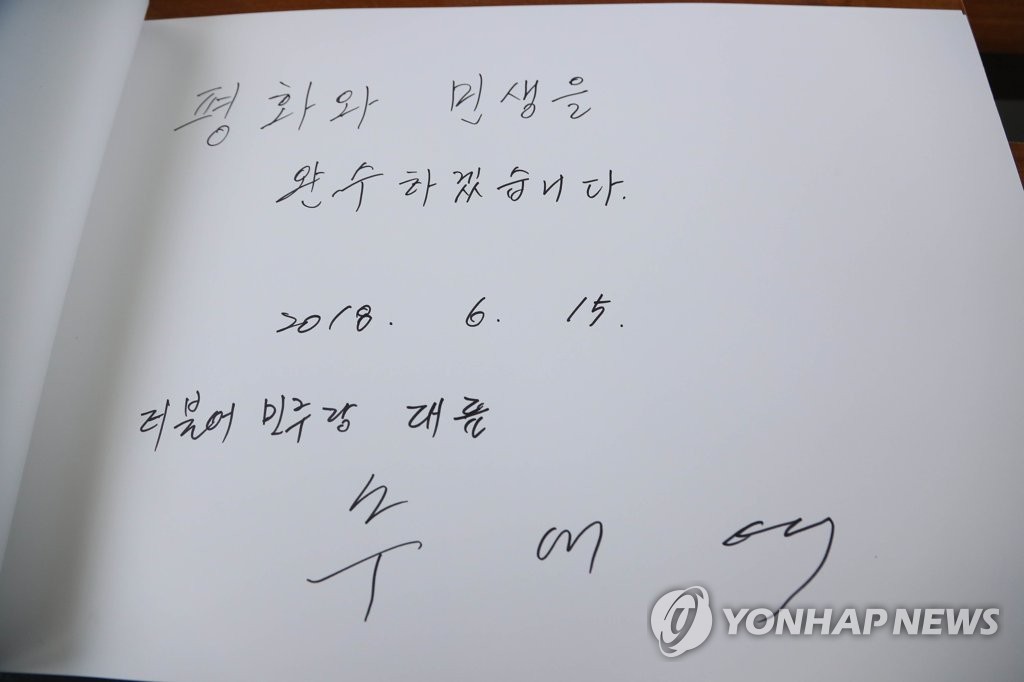 평화와 민생을
완수하겠습니다.
2018. 6. 15.
더불어민주당 대표
추 미 애
YONHAP NEWS